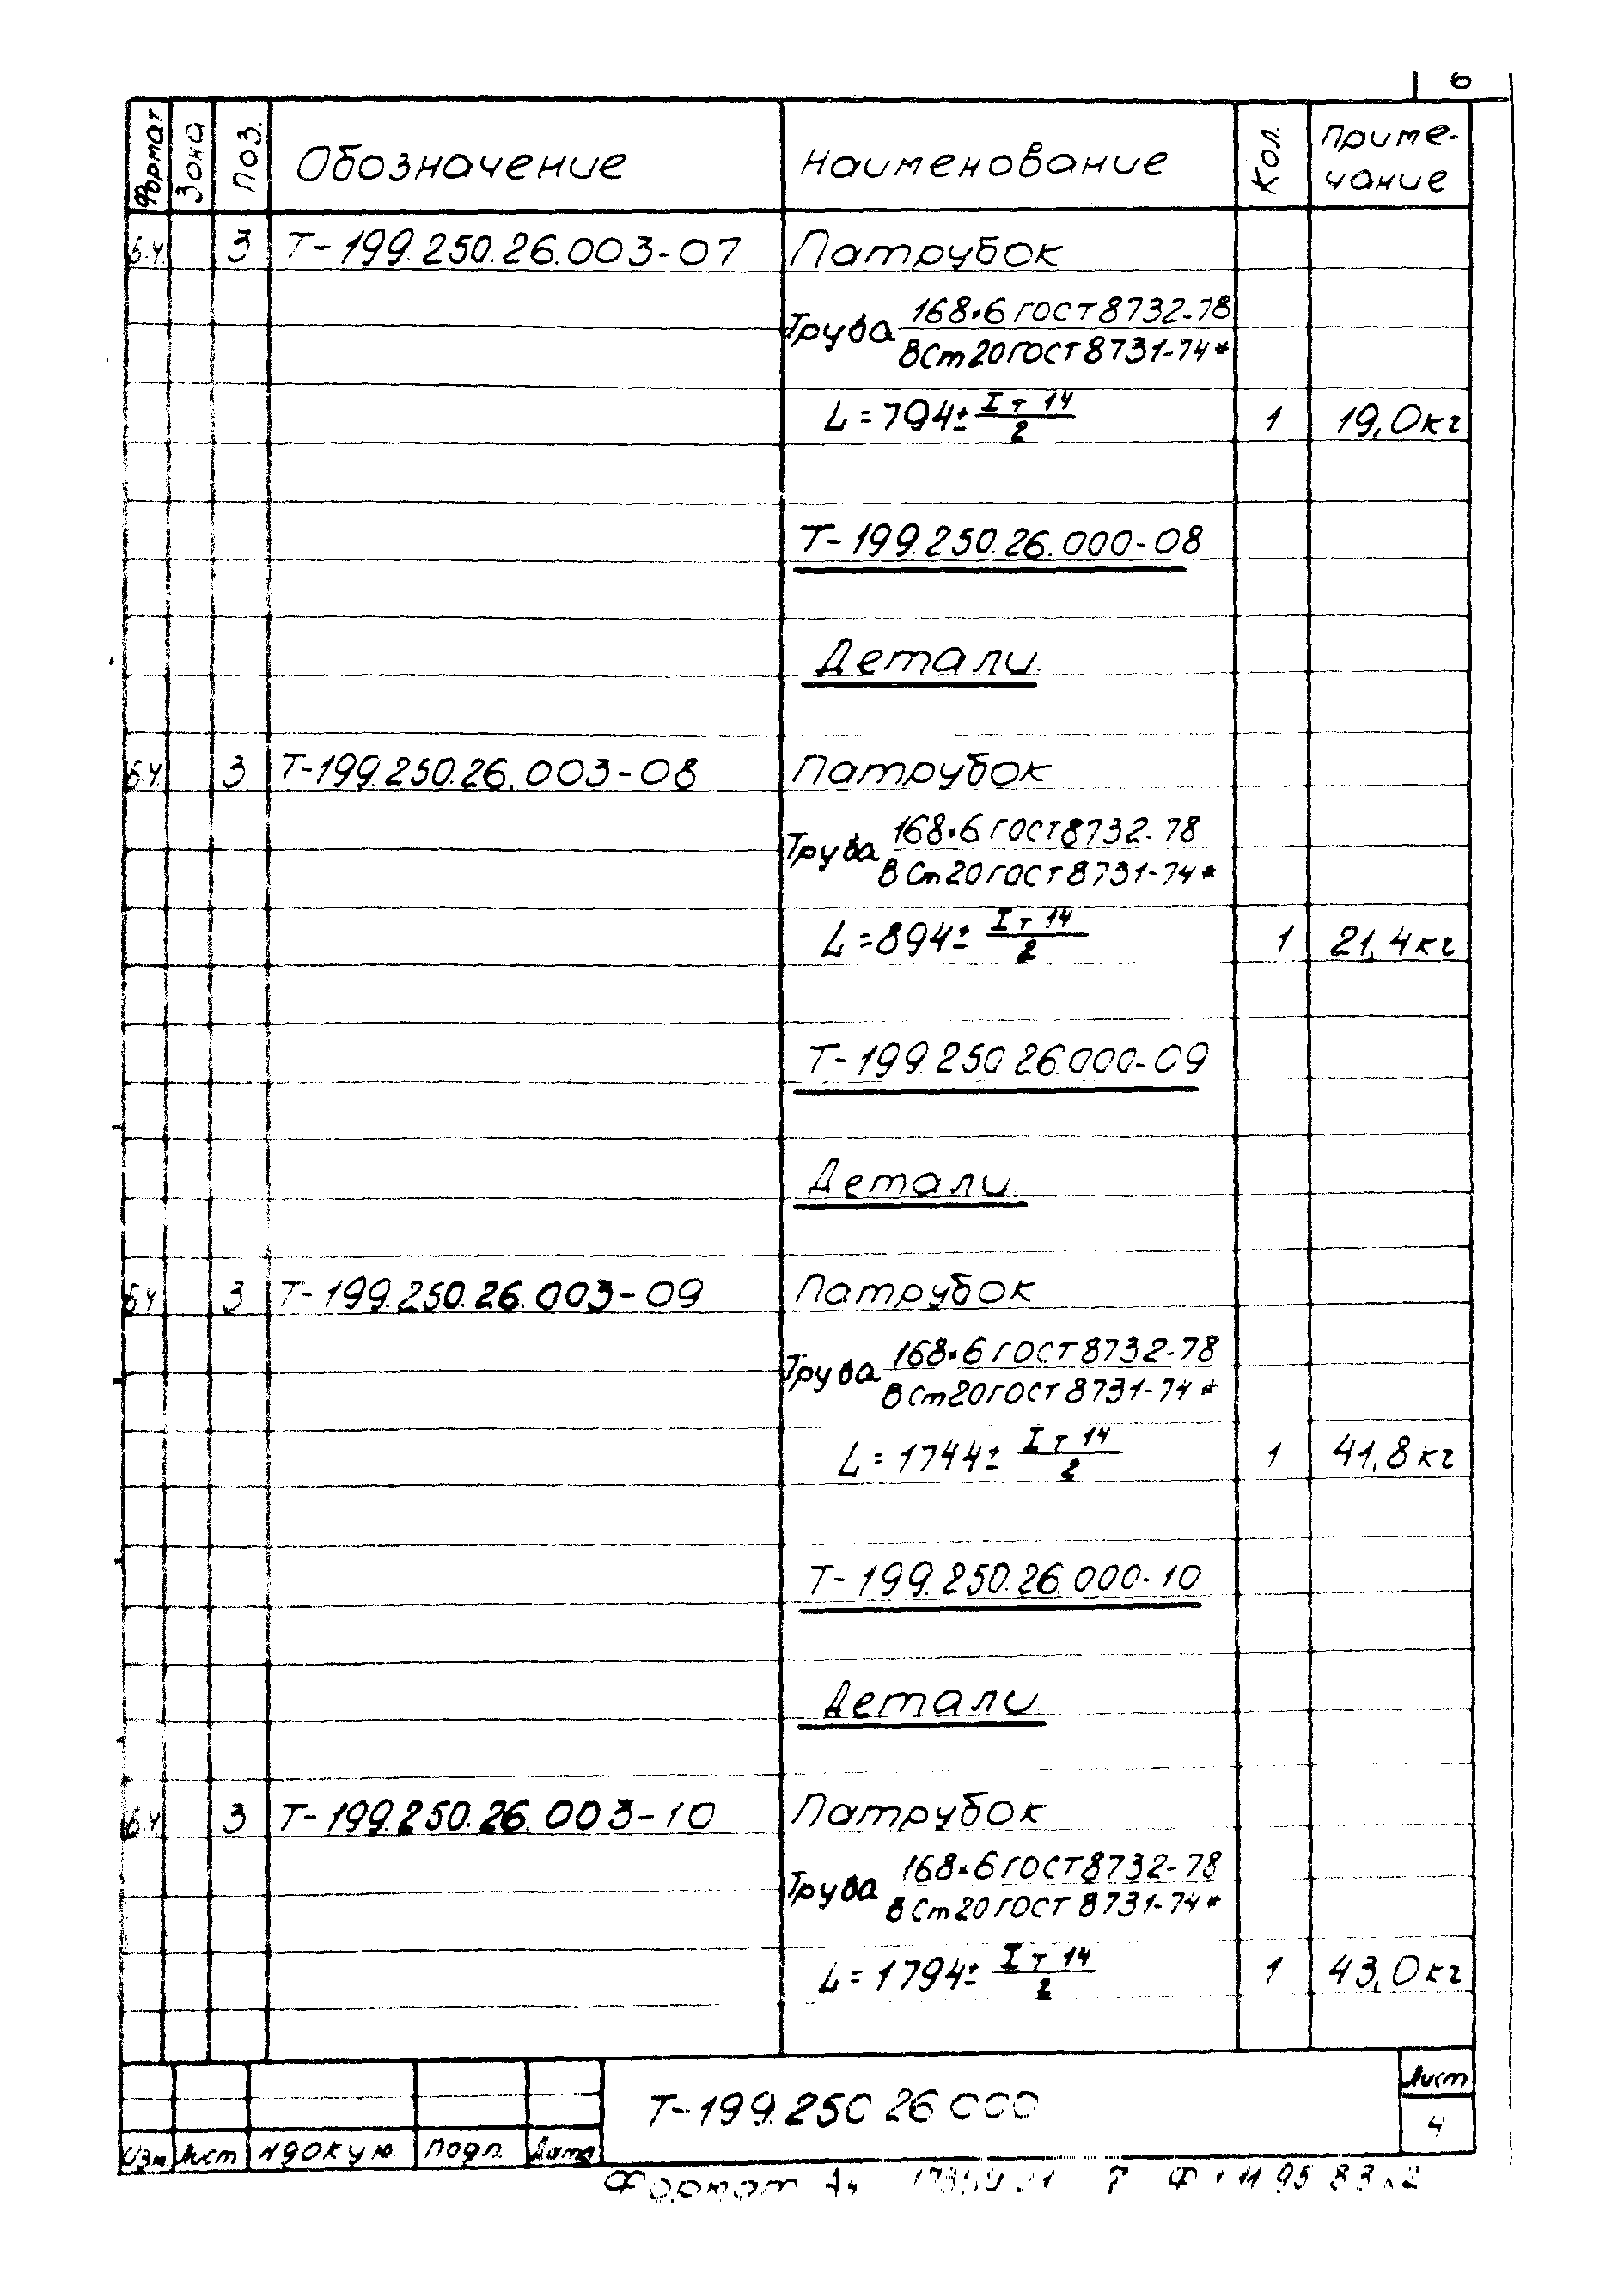 6
Формат Зона Поз. Обозначение Наименование Кол. Приме-
чание
Б.Ч. 3 Т-199.250.26.003-07 Патрубок
Труба 168×6 ГОСТ 8732-78
ВСт20 ГОСТ 8731-74*
L=794± IТ14/2 1 19,0кг
Т-199.250.26.000-08
Детали
Б.Ч. 3 Т-199.250.26.003-08 Патрубок
Труба 168×6 ГОСТ 8732-78
ВСт20 ГОСТ 8731-74*
L=894± IТ14/2 1 21,4кг
Т-199.250.26.000-09
Детали
Б.Ч. 3 Т-199.250.26.003-09 Патрубок
Труба 168×6 ГОСТ 8732-78
ВСт20 ГОСТ 8731-74*
L=1744± IТ14/2 1 41,8кг
Т-199.250.26.000-10
Детали
Б.Ч. 3 Т-199.250.26.003-10 Патрубок
Труба 168×6 ГОСТ 8732-78
ВСт20 ГОСТ 8731-74*
L=1794± IТ14/2 1 43,0кг
Т-199.250.26.000
Лист
4
Изм. Лист №докум. Подп. Дата
Формат А4